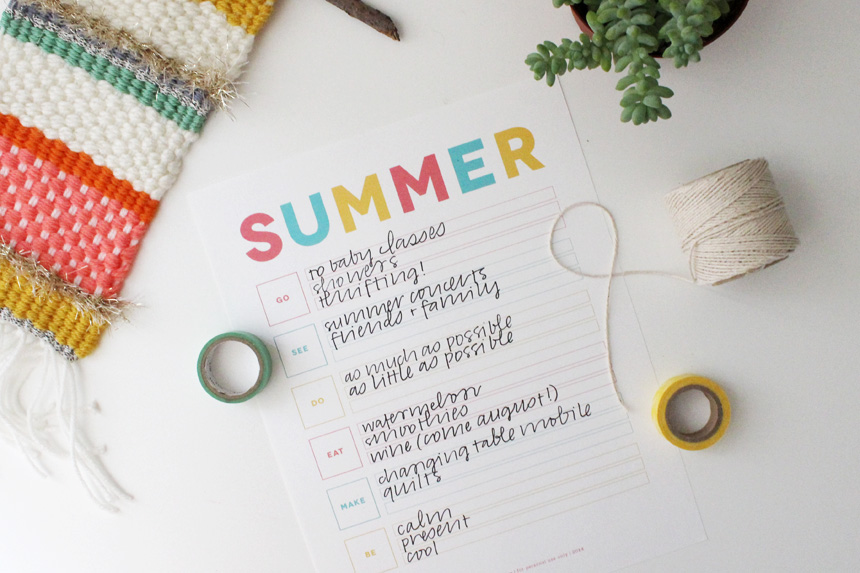 SUMMER
GO
to baby classes
showers
thrifting!
SEE
summer concerts
friends + family
DO
as much as possible
as little as possible
EAT
watermelon
smoothies
wine (come august!)
MAKE
changing table mobile
quilts
BE
calm
present
cool
for personal use only